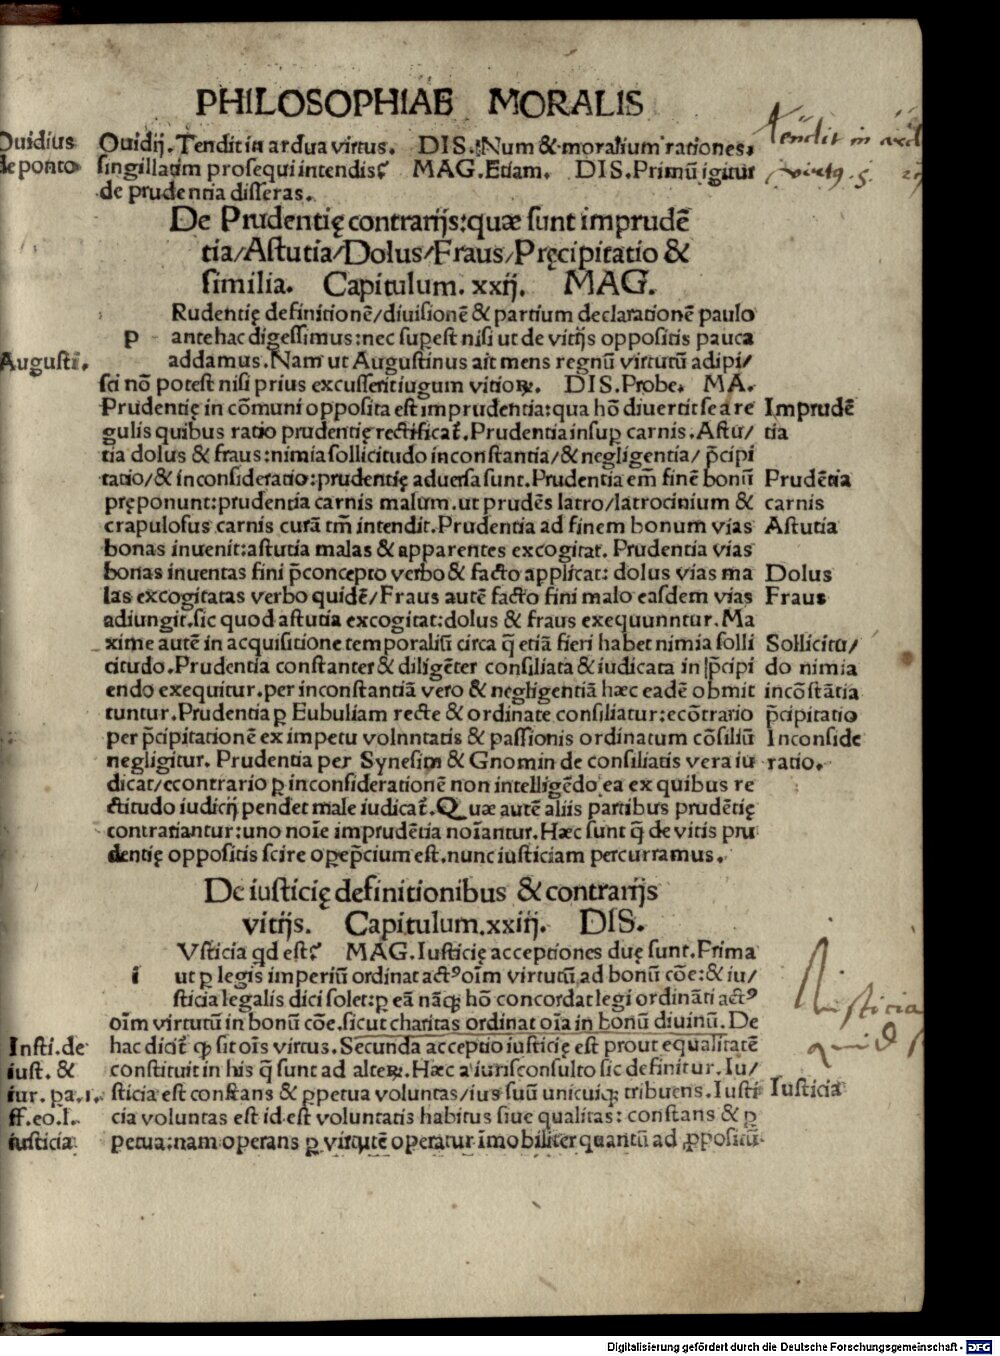 PHILOSOPHIAE MORALIS
Ouidius
de ponto
Ouidij. Tendit in ardua virtus. DIS. Num & moralium rationes
singillatim prosequi intendis? MAG. Etiam. DIS. Primū igitur
de prudentia disseras.
tendit in
virtꝰ
De Prudentię contrarijs: quæ sunt imprudē
tia/Astutia/Dolus/Fraus/Pręcipitatio &
similia. Capitulum. xxij. MAG.
p
Rudentię definitionē/diuisionē & partium declarationē paulo
ante hac digessimus: nec suꝑest nisi ut de vitijs oppositis pauca
Augusti.
addamus. Nam ut Augustinus ait mens regnū virtutū adipi/
sci nō potest nisi prius excusserit iugum vitioꝝ. DIS. Probe. MA.
Prudentię in cōmuni opposita est imprudentia: qua hō diuertit se a re
gulis quibus ratio prudentię rectificat᷑. Prudentia insuꝑ carnis. Astu/
tia dolus & fraus: nimia sollicitudo inconstantia/& negligentia/ p̄cipi
tatio/& inconsideratio: prudentię aduersa sunt. Prudentia em̄ finē bonū
pręponunt: prudentia carnis malum. ut prudēs latro/latrocinium &
crapulosus carnis curā tm̄ intendit. Prudentia ad finem bonum vias
bonas inuenit: astutia malas & apparentes excogitat. Prudentia vias
bonas inuentas fini p̄concepto verbo & facto applicat: dolus vias ma
las excogitatas verbo quidē/Fraus autē facto fini malo easdem vias
adiungit. sic quod astutia excogitat: dolus & fraus exequunntur. Ma
xime autē in acquisitione temporaliū circa q̄ etiā fieri habet nimia solli
citudo. Prudentia constanter & diligēter consiliata & iudicata in p̄cipi
endo exequitur. per inconstantiā vero & negligentiā hæc eadē obmit
tuntur. Prudentia ꝑ Eubuliam recte & ordinate consiliatur: ecōtrario
per p̄cipitationē ex impetu volnntatis & passionis ordinatum cōsiliū
negligitur. Prudentia per Synesim & Gnomin de consiliatis vera iu
dicat/econtrario ꝑ inconsiderationē non intelligēdo ea ex quibus re
ctitudo iudicij pendet male iudicat᷑. Quæ autē aliis partibus prudētię
contrariantur: uno noīe imprudētia noīantur. Hæc sunt q̄ de vitis pru
dentię oppositis scire oꝑep̄cium est. nunc iusticiam percurramus.
Imprudē
tia
Prudētia
carnis
Astutia
Dolus
Fraus
Sollicitu/
do nimia
incōstātia
p̄cipitatio
Inconside
ratio.
De iusticię definitionibus & contrarijs
vitijs. Capitulum. xxiij. DIS.
i
Vsticia qd est? MAG. Iusticię acceptiones duę sunt. Prima
ut ꝑ legis imperiū ordinat actꝰ oīm virtutū ad bonū cōe: & iu/
sticia legalis dici solet: ꝑ eā nāqꝫ hō concordat legi ordināti actꝰ
oīm virtutū in bonū cōe. sicut charitas ordinat oīa in bonū diuinū. De
hac dicit᷑ ꝙ sit oīs virtus. Secunda acceptio iusticię est prout equalitatē
constituit in his q̄ sunt ad alteꝝ. Hæc a iurisconsulto sic definitur. Iu/
sticia est constans & ꝑpetua voluntas/ius suū unicuiqꝫ tribuens. Iusti
cia voluntas est id est voluntatis habitus siue qualitas: constans & ꝑ
petua: nam operans ꝑ virtutē operatur īmobiliter quantū ad ꝓpositū
Insti. de
iust. &
iur. pa. 1.
ff. eo. l.
iusticia
Iusticia
quid
Iusticia
Digitalisierung gefördert durch die Deutsche Forschungsgemeinschaft - DFG